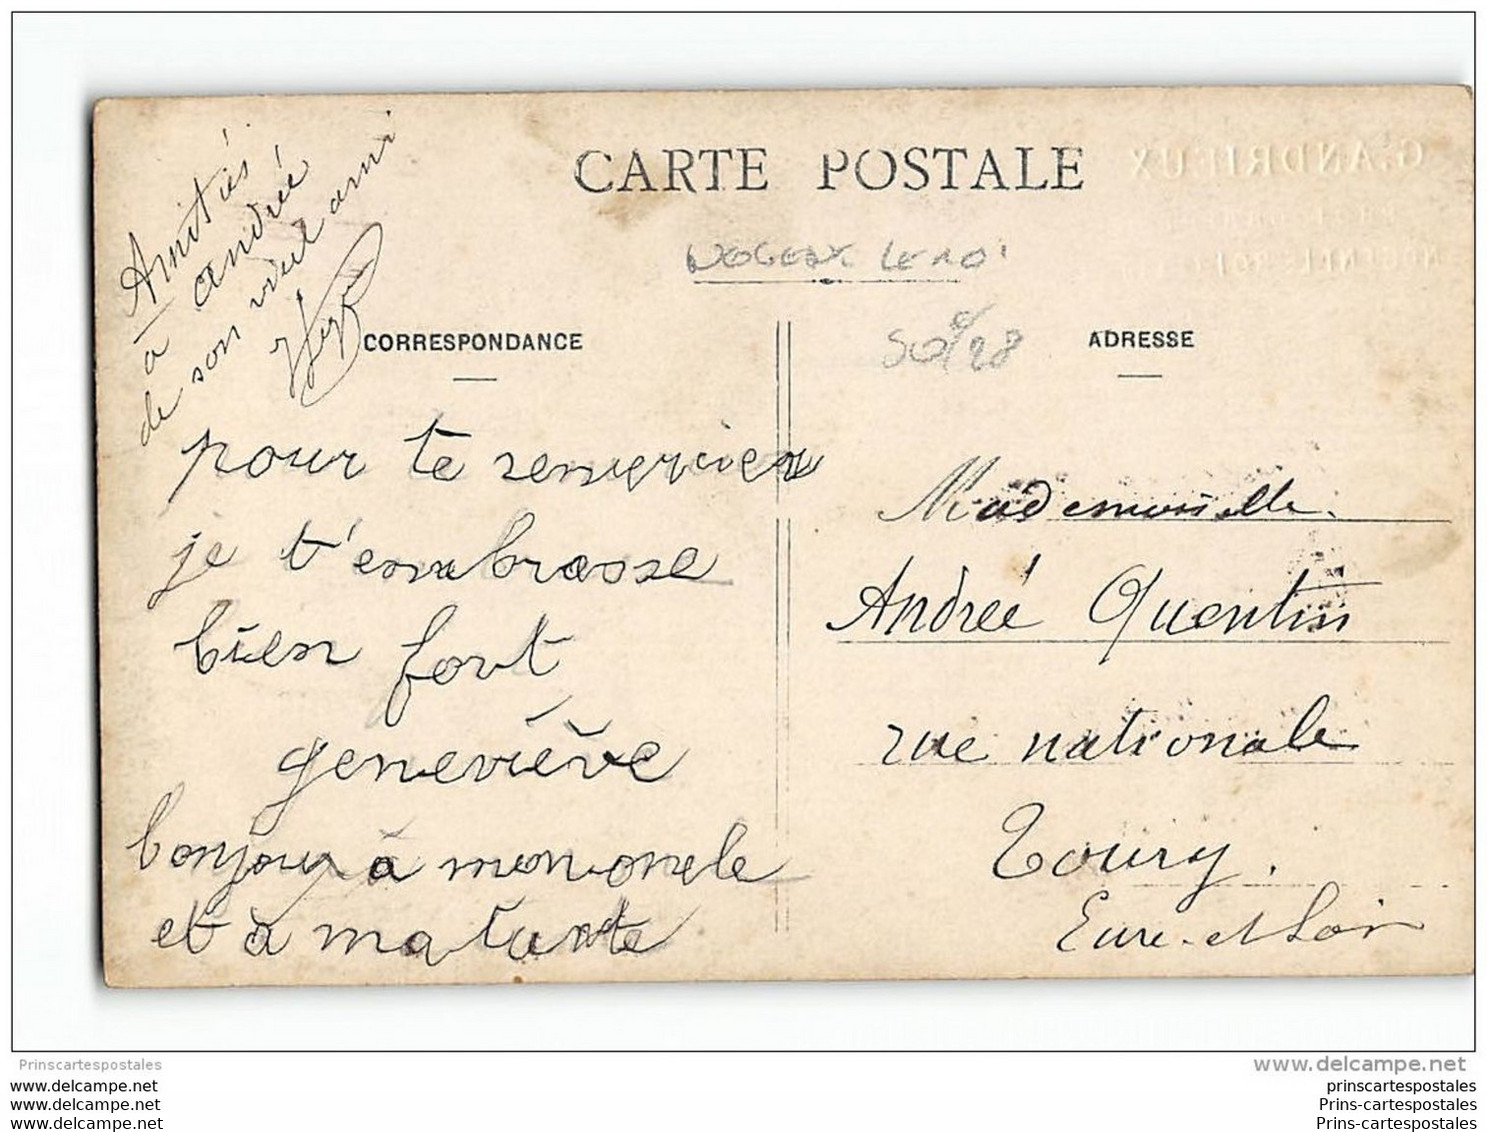 CARTE POSTALE
G. ANDRIEUX
NOGENT LE ROI
Amitiés
à Andrée
de son vieil ami
CORRESPONDANCE
ADRESSE
50/28
pour te remercier
je t'embrasse
bien fort
geneviève
bonjour à mon oncle
et à ma tante
Mademoiselle
Andrée Quentin
rue nationale
Toury.
Eure-et-Loir
Prinscartespostales
www.delcampe.net
www.delcampe.net
www.delcampe.net
www.delcampe.net
prinscartespostales
Prins-cartespostales
Prins-cartespostales